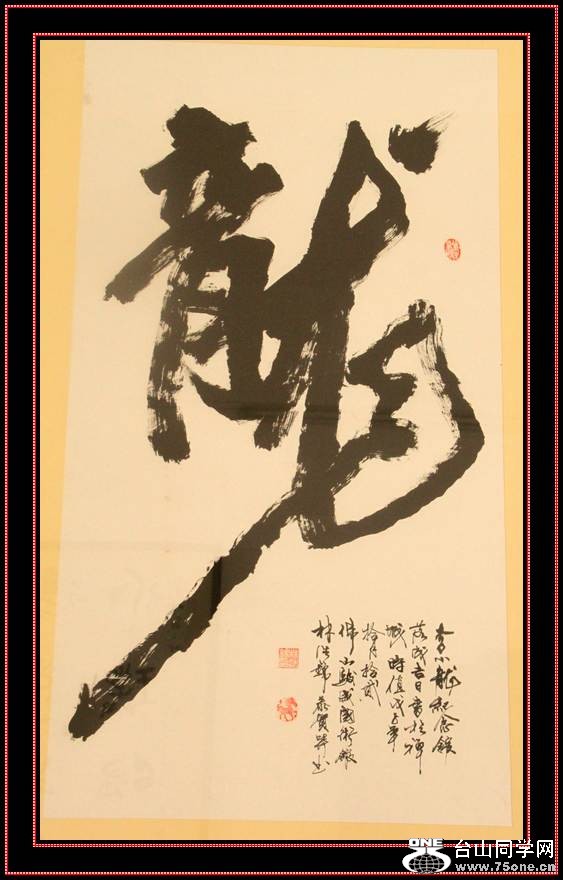 龍
李小龍紀念館
落成吉日書於禅
城時值戊子年
拾月拾貳
佛山
林 恭賀并书
ONE
台山同学网
www.75one.cn